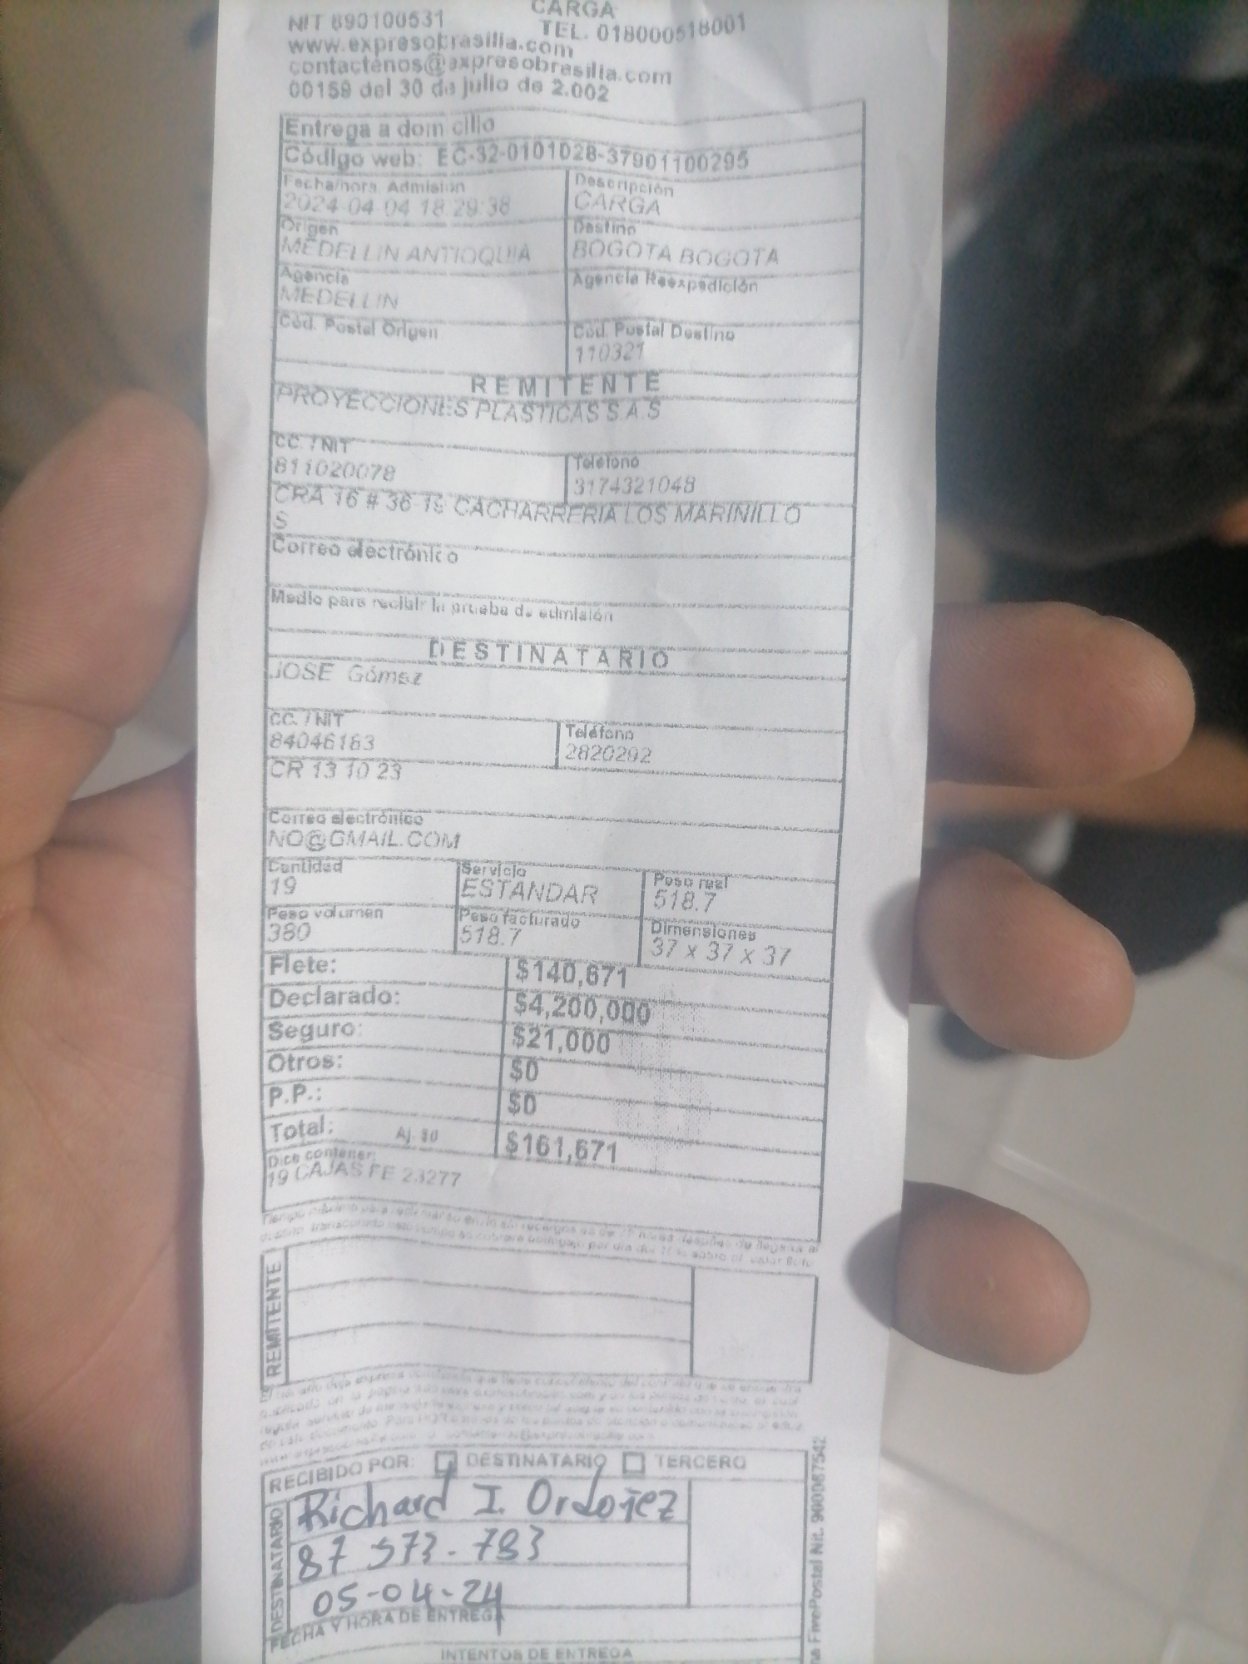 CARGA
NIT 890100531 TEL. 018000518001
www.expresobrasilia.com
contactenos@expresobrasilia.com
00159 del 30 de julio de 2.002
Entrega a domicilio
Código web: EC-32-0101028-37901100295
Fecha/hora Admisión Descripción
2024-04-04 18:29:38 CARGA
Origen Destino
MEDELLIN ANTIOQUIA BOGOTA BOGOTA
Agencia Agencia Reexpedición
MEDELLIN
Cód. Postal Origen Cód. Postal Destino
110321
REMITENTE
PROYECCIONES PLASTICAS S.A.S
CC. / NIT Teléfono
811020078 3174321048
CRA 16 # 36 19 CACHARRERIA LOS MARINILLO
S
Correo electrónico
Medio para recibir la prueba de admisión
DESTINATARIO
JOSE Gómez
CC. / NIT Teléfono
84046163 2820292
CR 13 10 23
Correo electrónico
NO@GMAIL.COM
Cantidad Servicio Peso real
19 ESTANDAR 518.7
Peso volumen Peso facturado Dimensiones
380 518.7 37 x 37 x 37
Flete: $140,671
Declarado: $4,200,000
Seguro: $21,000
Otros: $0
P.P.: $0
Total: Aj. $0 $161,671
Dice contener:
19 CAJAS FE 23277
REMITENTE
RECIBIDO POR: DESTINATARIO TERCERO
DESTINATARIO
Richard I. Ordoñez
87 573-783
05-04-24
FECHA Y HORA DE ENTREGA
INTENTOS DE ENTREGA
FivePostal Nit. 900067542